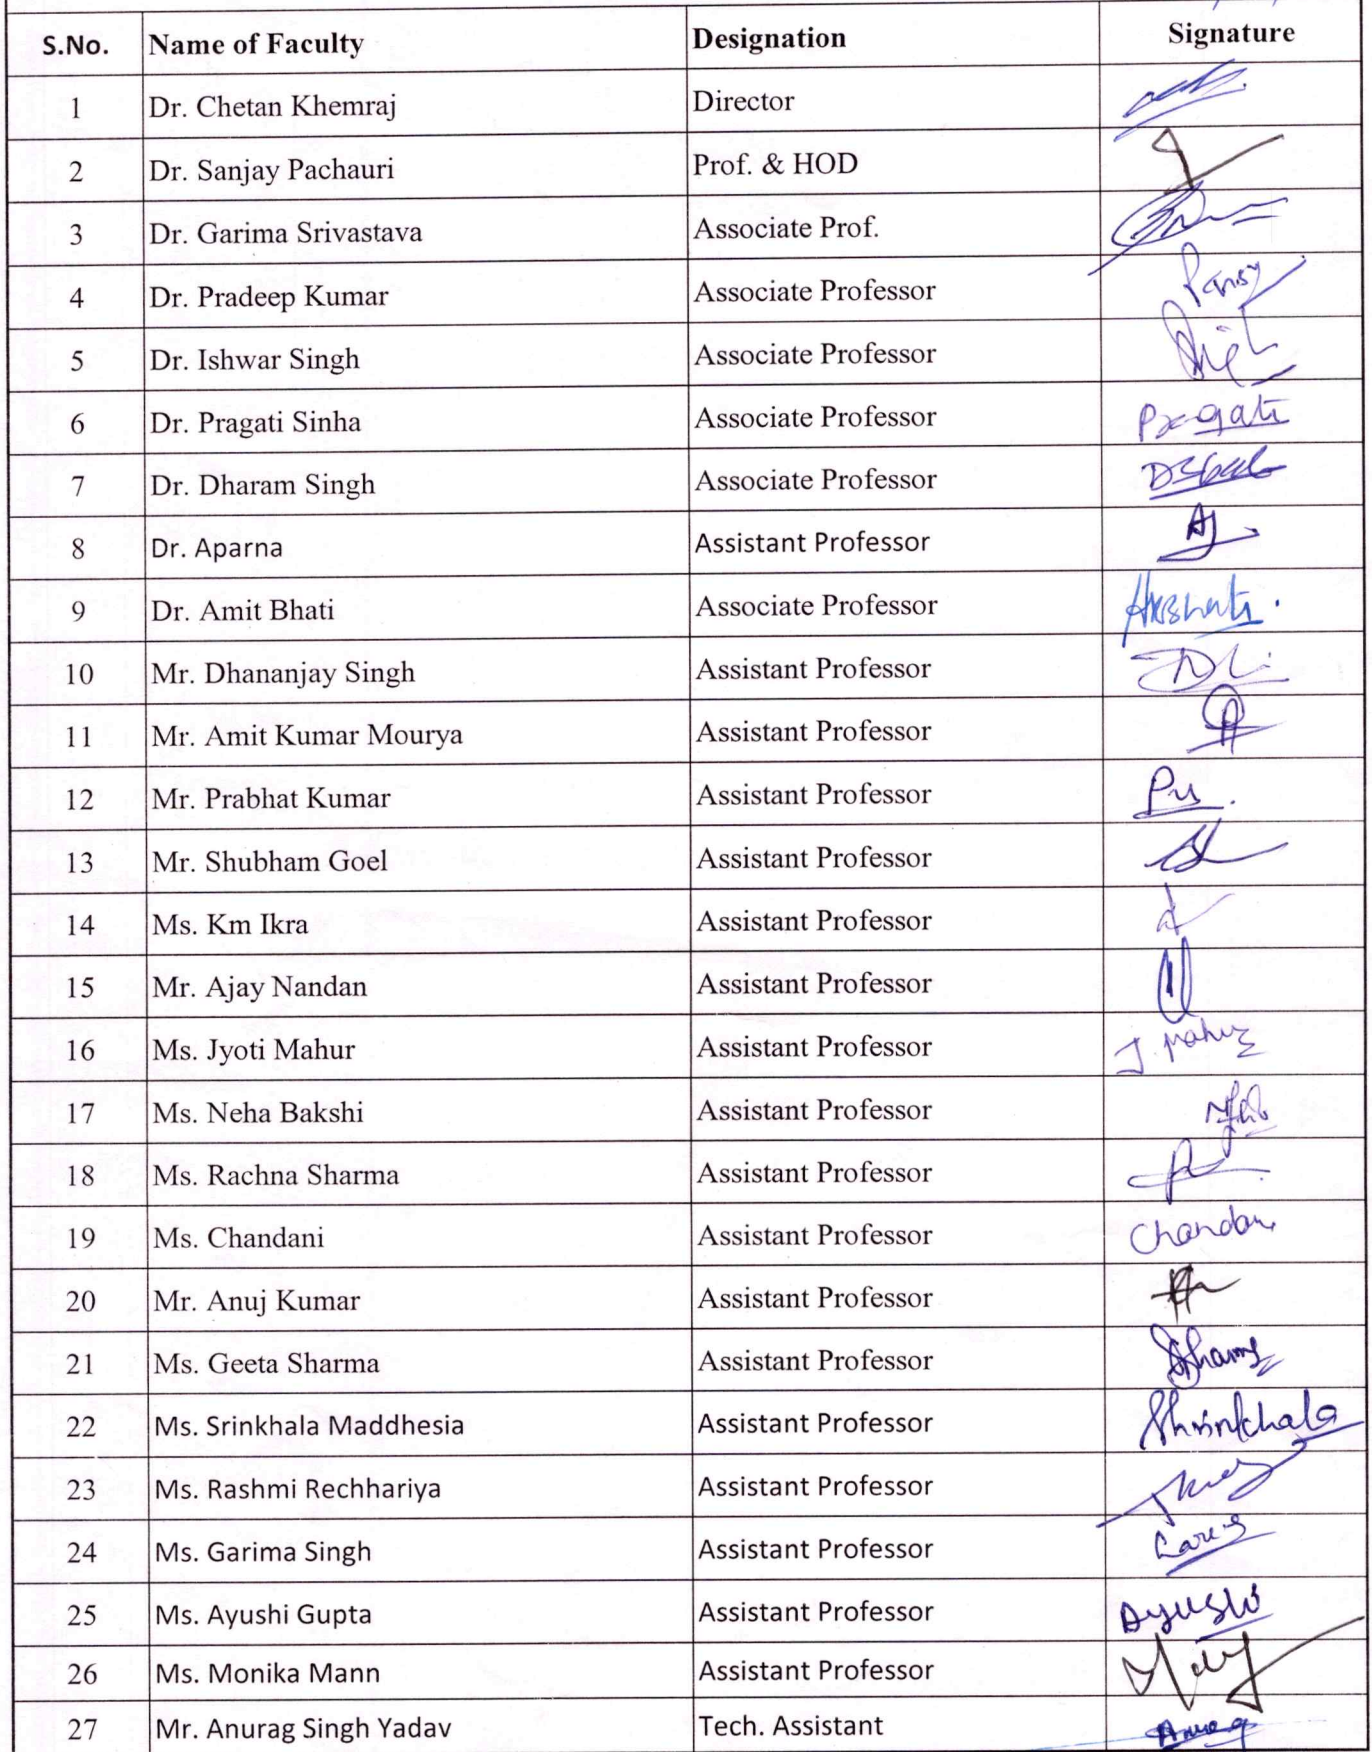 S.No. Name of Faculty Designation Signature
1 Dr. Chetan Khemraj Director
2 Dr. Sanjay Pachauri Prof. & HOD
3 Dr. Garima Srivastava Associate Prof.
4 Dr. Pradeep Kumar Associate Professor
5 Dr. Ishwar Singh Associate Professor
6 Dr. Pragati Sinha Associate Professor Pragati
7 Dr. Dharam Singh Associate Professor
8 Dr. Aparna Assistant Professor
9 Dr. Amit Bhati Associate Professor
10 Mr. Dhananjay Singh Assistant Professor
11 Mr. Amit Kumar Mourya Assistant Professor
12 Mr. Prabhat Kumar Assistant Professor
13 Mr. Shubham Goel Assistant Professor
14 Ms. Km Ikra Assistant Professor
15 Mr. Ajay Nandan Assistant Professor
16 Ms. Jyoti Mahur Assistant Professor J. Mahur
17 Ms. Neha Bakshi Assistant Professor
18 Ms. Rachna Sharma Assistant Professor
19 Ms. Chandani Assistant Professor Chandani
20 Mr. Anuj Kumar Assistant Professor
21 Ms. Geeta Sharma Assistant Professor
22 Ms. Srinkhala Maddhesia Assistant Professor Shrinkhala
23 Ms. Rashmi Rechhariya Assistant Professor
24 Ms. Garima Singh Assistant Professor
25 Ms. Ayushi Gupta Assistant Professor Ayushi
26 Ms. Monika Mann Assistant Professor
27 Mr. Anurag Singh Yadav Tech. Assistant